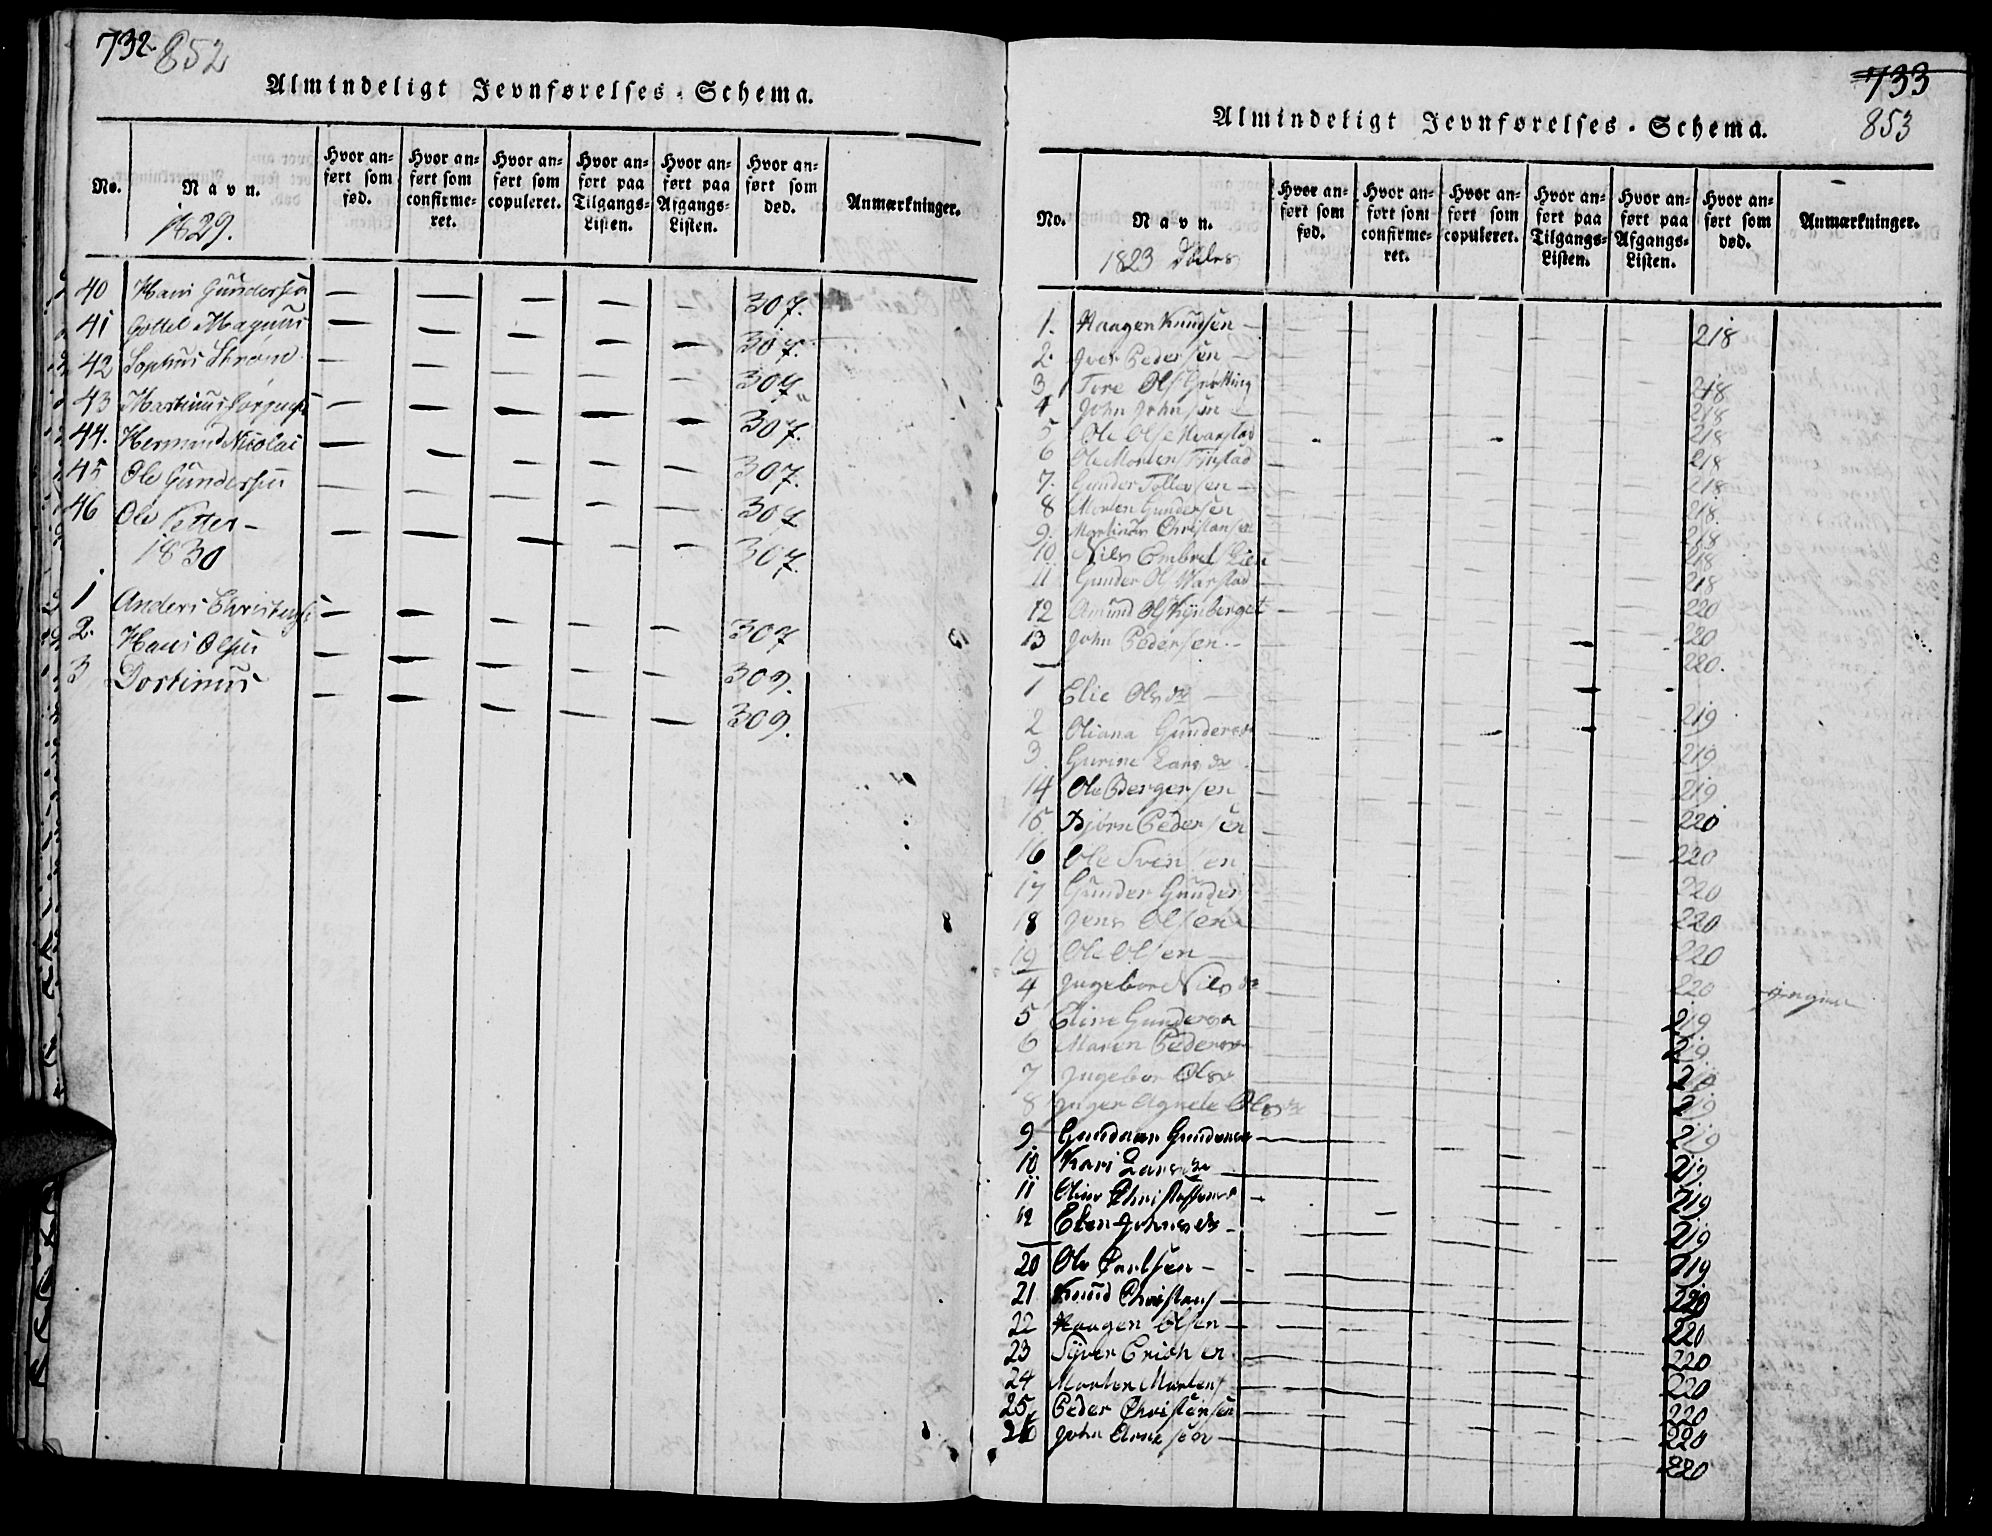 732. 852
Almindeligt Jevnførelses-Schema.
No.
Navn.
Hvor anført som fød.
Hvor anført som confirmeret.
Hvor anført som copuleret.
Hvor anført paa Tilgangs-Listen.
Hvor anført paa Afgangs-Listen.
Hvor anført som død.
Anmærkninger.
1829.
40 Hans Gundersen — — — — — 307.
41 Gottel Magnus — — — — — 307.
42 Sophus Strøm — — — — — 307.
43 Martinus — — — — — 307.
44. Hermand Nicolai — — — — — 307.
45 Ole Gundersen — — — — — 307
46 Ole Petter — — — — — — 307.
1830
1 Anders — — — — — 307
2. Hans Olsen — — — — — 309.
3 Dortinus — — — — — 309.
733
853
Almindeligt Jevnførelses-Schema.
No.
Navn.
Hvor anført som fød.
Hvor anført som confirmeret.
Hvor anført som copuleret.
Hvor anført paa Tilgangs-Listen.
Hvor anført paa Afgangs-Listen.
Hvor anført som død.
Anmærkninger.
1823 Døles
1. Haagen Knudsen — 218
2. Iver Pedersen — 218
3 Tore Ols Grøtting 218
4 John Johnsen — 218
5 Ole Olse Kvarstad 218
6 Ole Mortens 218
7. Gunder Tollevsen — 218.
8 Morten Gundersen 218
9. Martinus Christansen 218
10 Nils Embretslien 218
11 Gunder Ol Harstad 220
12 Amund Ols Kynberget 220
13 John Pedersen — 220.
1 Elie Olsdr — 219
2 Oliana Gundersdr 219
3. Gurine Larsdr 219
14 Ole Bergersen 220
15 Bjørn Pedersen 220
16 Ole Svensen 220
17 Gunder Gunders 220
18 Jens Olsen 220
19 Ole Olsen — 220
4 Ingebor Nilsdr 219
5 Eline Gundersdr 219
6 Maren Pedersdr 219
7 Ingebor Olsdr 219
8 Inger Agnete Olsdr 219
9. Gundersdr — 219
10 Kari Larsdr 219
11 Oline 219
12 Elen Johnsdr — 219
20 Ole Paulsen — 220
21 Knud Christans — 220
22 Haagen Olsen — 220
23 Syver Erichsen 220
24 Morten Mortens 220
25 Peder Christensen 220
26 John Arnesen 220